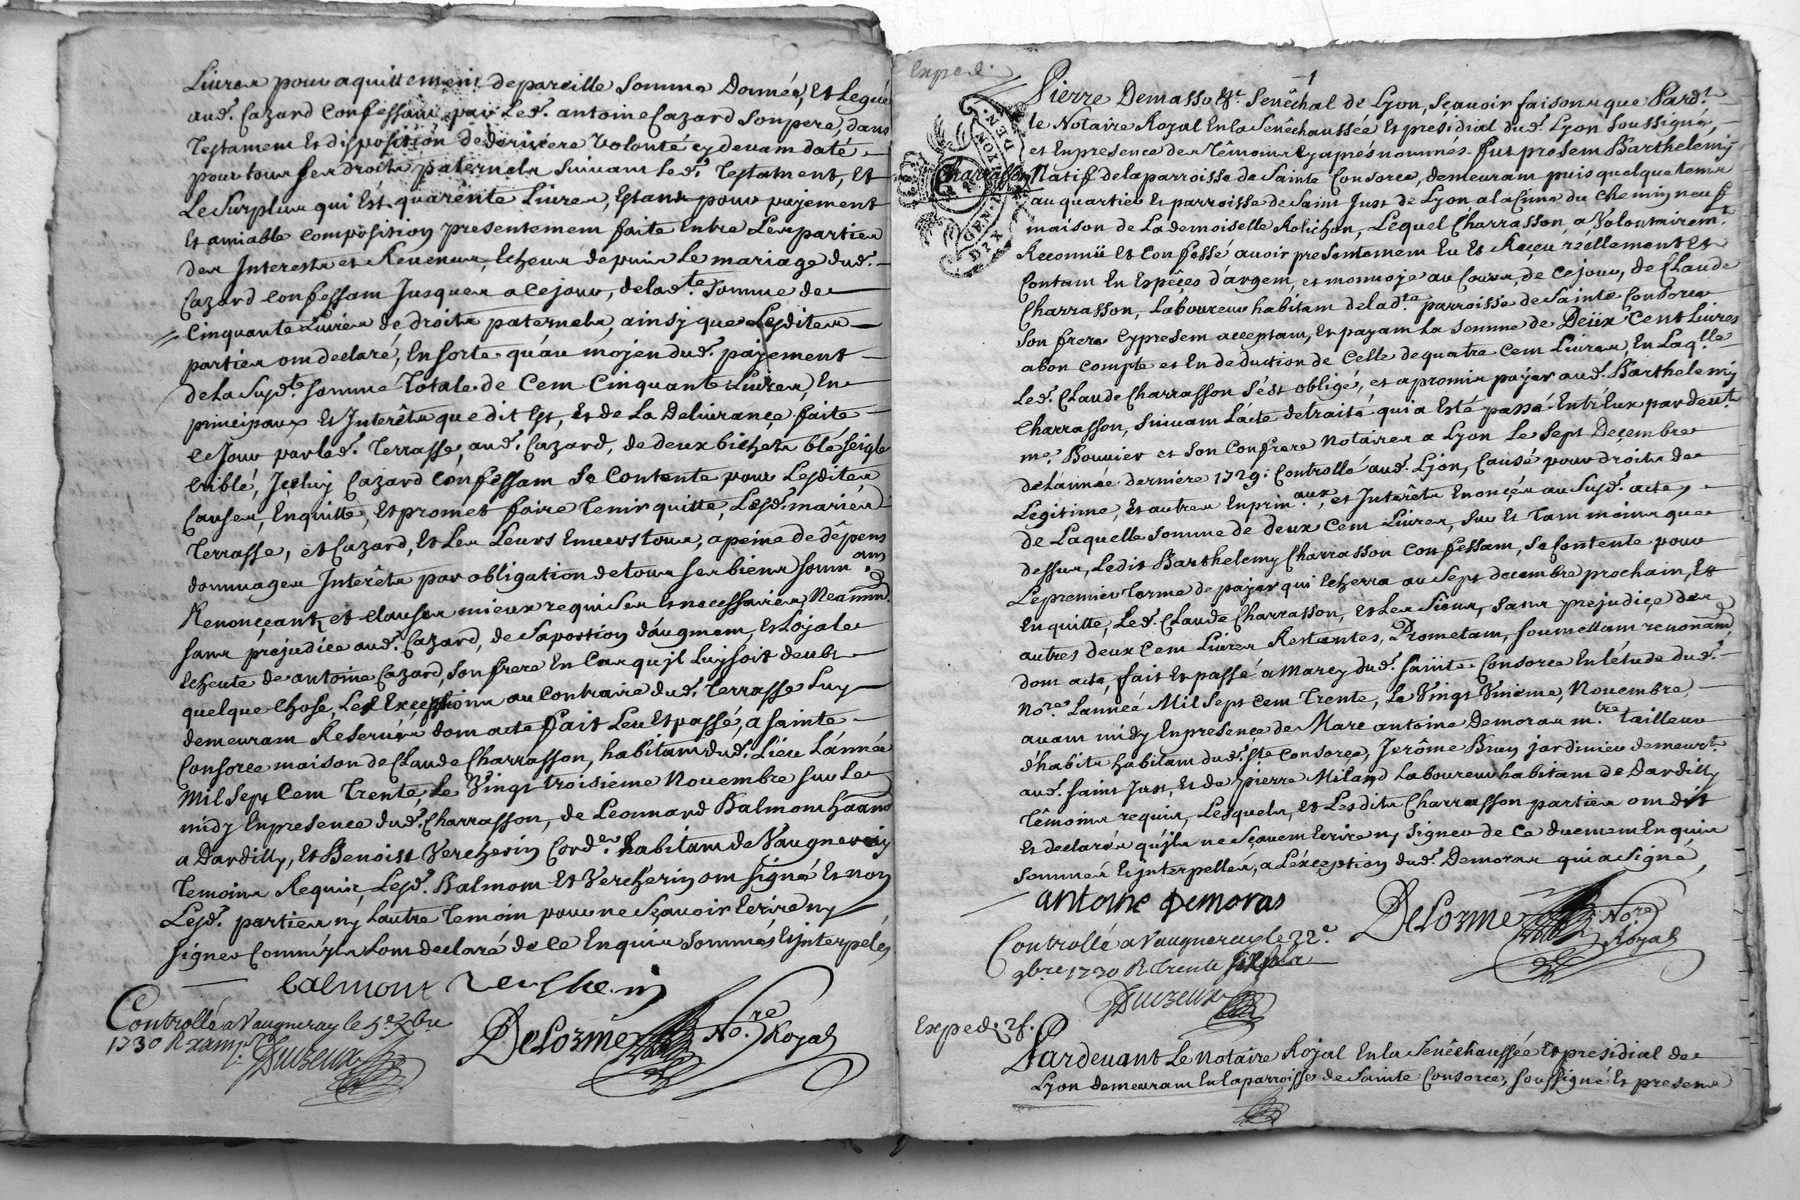 Livres pour aquittement de pareille somme Donnée, et Legué
aud. Cazard Confessant par Led. antoine Cazard son pere, dans
Testament Et disposition de derniere volonté cy devant daté
pour tous ses droits paternels suivant Led. Testament, et
Le Surplus qui Est quarente Livres, Estant pour payement
Et amiable composition presentement faite Entre Les parties
des Interests et Revenus, Echeus depuis Le mariage dud.
Cazard confessant Jusques a ce jour, de lad.te somme de
Cinquante Livres de droits paternels, ainsy que Lesdites
parties ont declaré, En sorte qu'au moyen dud. payement
de La Susd.te somme Totale de Cent Cinquante Livres, En
principaux Et Interêts que dit Est, Et de La Delivrance faite
ce Jour par led. Terrasse, aud. Cazard, de deux bichets blé seigle
criblé, Jceluy Cazard Confessant Se Contente pour Lesdites
Causes, En quitte, Et promet faire Tenir quitte, Lesd. mariés
Terrasse, et Cazard, Et Les Leurs Envers tous, a peine de dêpens
dommages Interêts par obligation de tous ses biens soum.ons
Renonçeant, et clauses mieux requises Et necessaires, Neantm.
sans prejudice aud. Cazard, de sa portion d'augment, Et Loyale
Echeute de antoine Cazard, son frere En Cas qu'jl Luy soit deubt
quelque Chose, Les Exceptions au Contraire dud. Terrasse Luy
demeurant Reservés dont acte fait Leu Et passé, a Sainte
Consorce maison de Claude Charrasson, habitant dud. Lieu L'année
Mil Sept Cent Trente, Le Vingt troisieme Novembre sur Le
midy En presence dud. Charrasson, de Leonnard Balmont
a Dardilly, Et Benoist Vercherin Cord.er habitant de Vaugneray
Temoins Requis, Lesd. Balmont Et Vercherin ont signé Et non
Lesd. parties ny Lautre Temoin pour ne sçavoir Ecrire ny
signer Comm'jls L'ont declaré de ce Enquis sommés Et jnterpelés
balmont Vercherin
Controllé a Vaugneray le
1730 R
Duizeux
Delorme No.re Royal
Exped.
1
Pierre Demasso Sénêchal de Lyon, sçavoir faisons que Pard.t
le Notaire Royal En la Senêchaussée Et présidial dud. Lyon soussigné,
et En presence des Têmoins Cy aprés nommés. fut présent Barthelemy
Charrasson Natif de la parroisse de Sainte Consorce, demeurant puis quelque tems
au quartier Et parroisse de Saint Just de Lyon a la Cime du Chemin neuf
maison de La demoiselle Rolichon, Lequel Charrasson, a Volontairem.t
Reconnü Et Confessé avoir presentement Eu Et Reçeu réellement Et
Contant En Espêces d'argent, et monnoye au Cours, de ce jour, de Claude
Charrasson, Laboureur habitant de lad.te parroisse de Sainte Consorce
son frere Cy present acceptant, Et payant La somme de Deüx Cent Livres
a bon Compte et En deduction de Celle de quatre Cent Livres En Laq.lle
Led. Claude Charrasson S'est obligé, et a promis payer aud. Barthelemy
Charrasson, suivant L'acte de traité qui a Esté passé Entr'Eux par devt.
me. Bouvier et son Confrere Notaires a Lyon Le Sept Deçembre
de L'année derniére 1729. Controllé aud. Lyon, Causé pour droits de
Legitime, Et autres En prin.aux, et Interêts Enonçés au Susd. acte,
de Laquelle somme de deux Cent Livres, sur Et Tant moins que
dessus, Ledit Barthelemy Charrasson Confessant, Se Contente pour
Le premier Terme de payer qui Echerra au Sept decembre prochain, Et
En quitte, Led. Claude Charrasson, Et Les Siens, sans prejudiçe des
autres deux Cent Livres Restantes, Prometant, soumettant renonçant
dont acte, fait Et passé a Marcy dud. Sainte Consorce En l'étude dud.
No.re L'année Mil Sept Cent Trente, Le Vingt Unieme, Novembre
avant midy En presence de Marc antoine Demoras m.tre Tailleur
d'habits habitant dud. Ste Consorçe, Jerôme Brun jardinier demeur.t
aud. Saint Just, Et de Pierre Miland Laboureur habitant de Dardilly
Têmoins requis, Lesquels, Et Lesdits Charrasson parties ont dit
Et declarés qu'jls ne Sçavent Ecrire ny Signer de Ce duement Enquis
sommés Et jnterpellés, a L'exception dud. Demoras qui a Signé
antoine Demoras
Delorme No.re Royal
Controllé a Vaugneray le 22e
9bre 1730 R Trente
Duizeux
Exped. 2f.
Pardevant Le Notaire Royal En la Senêchaussée Et présidial de
Lyon demeurant En la parroisse de Sainte Consorce, soussigné Et present